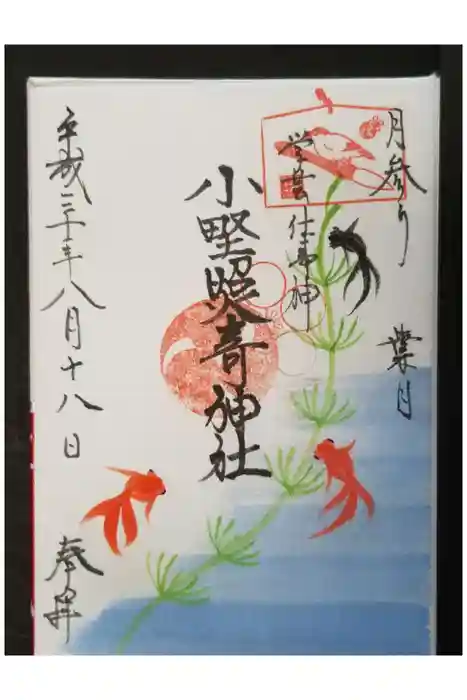 月参り 葉月
学芸仕事神
小野照嵜神社
平成三十年八月十八日
奉拝